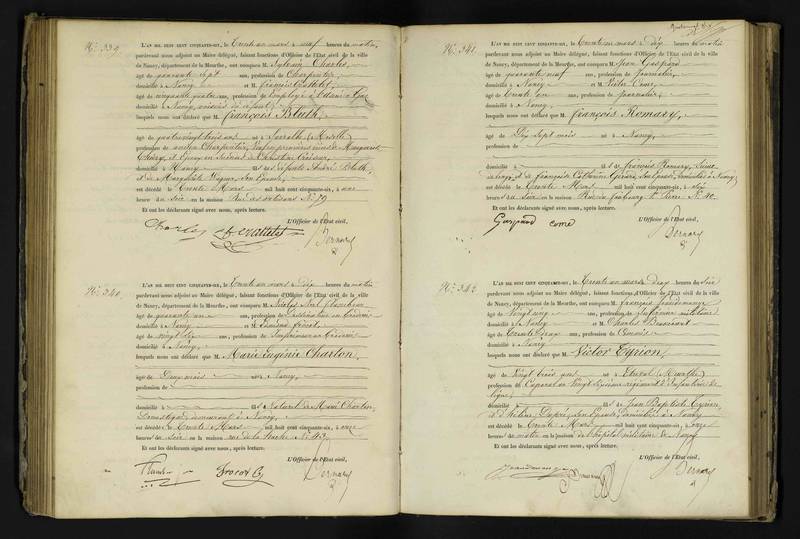 N.° 339.
L'AN MIL HUIT CENT CINQUANTE-SIX, le trente un mars à neuf heures du matin,
pardevant nous adjoint au Maire délégué, faisant fonctions d'Officier de l'Etat civil de la ville
de Nancy, département de la Meurthe, ont comparu M. Sylvain Charles,
âgé de quarante sept ans, profession de Charpentier,
domicilié à Nancy et M. François
âgé de cinquante quatre ans, profession de Employé
domicilié à Nancy, voisins du défunt
lesquels nous ont déclaré que M. François Bluth,
âgé de quatre vingt trois ans né à (Moselle)
profession de ancien Charpentier, Veuf en premières noces de Marguerite
Thiéry, et Epoux en Secondes de Christine
domicilié à Nancy fils des défunts André Bluth
et de Marguerite son Epouse
est décédé le trente Mars mil huit cent cinquante-six, à une
heure du soir en la maison Rue des artisans N.° 79
Et ont les déclarants signé avec nous, après lecture.
L'Officier de l'Etat civil,
Charles
Bernard
N.° 340.
L'AN MIL HUIT CENT CINQUANTE-SIX, le trente un mars à dix heures du matin
pardevant nous adjoint au Maire délégué, faisant fonctions d'Officier de l'Etat civil de la ville
de Nancy, département de la Meurthe, ont comparu M. Nicolas
âgé de quarante un ans, profession de Dessinateur en broderie
domicilié à Nancy et M.
âgé de vingt six ans, profession de Imprimeur en broderie
domicilié à Nancy,
lesquels nous ont déclaré que M. Marie Eugénie Charton,
âgé de Deux mois née à Nancy,
profession de
domicilié à fille Naturelle de Marie Charton,
Domestique demeurant à Nancy,
est décédé le trente Mars mil huit cent cinquante-six, à onze
heures du soir en la maison rue de la N.° 42.
Et ont les déclarants signé avec nous, après lecture.
L'Officier de l'Etat civil,
Bernard
N.° 341.
L'AN MIL HUIT CENT CINQUANTE-SIX, le trente un mars à dix heures du matin
pardevant nous adjoint au Maire délégué, faisant fonctions d'Officier de l'Etat civil de la ville
de Nancy, département de la Meurthe, ont comparu M. Jean Gaspard
âgé de quarante neuf ans, profession de Journalier,
domicilié à Nancy et M. Victor Come,
âgé de trente un ans, profession de Journalier,
domicilié à Nancy
lesquels nous ont déclaré que M. François Romary,
âgé de Dix sept mois né à Nancy,
profession de
domicilié à fils de François Romary,
et de françoise Catherine Gérard, son Epouse, domiciliés à Nancy
est décédé le trente Mars mil huit cent cinquante-six, à six
heures du Soir en la maison Rue du faubourg St Pierre N.° 40.
Et ont les déclarants signé avec nous, après lecture.
L'Officier de l'Etat civil,
Gaspard come
Bernard
N.° 342.
L'AN MIL HUIT CENT CINQUANTE-SIX, le trente un mars à deux heures du soir
pardevant nous adjoint au Maire délégué, faisant fonctions d'Officier de l'Etat civil de la ville
de Nancy, département de la Meurthe, ont comparu M. François
âgé de vingt cinq ans, profession de Infirmier militaire
domicilié à Nancy et M. Charles
âgé de trente deux ans, profession de Commis
domicilié à Nancy
lesquels nous ont déclaré que M. Victor Tyrion,
âgé de Vingt trois ans né à Etival (Meurthe)
profession de Caporal au régiment d'Infanterie de
ligne,
domicilié à fils de Jean Baptiste Tyrion
et d'hélène Dupré, son Epouse, domiciliés à Nancy
est décédé le trente Mars mil huit cent cinquante-six, à onze
heures du matin en la maison de l'hôpital militaire de Nancy
Et ont les déclarants signé avec nous, après lecture.
L'Officier de l'Etat civil,
Bernard